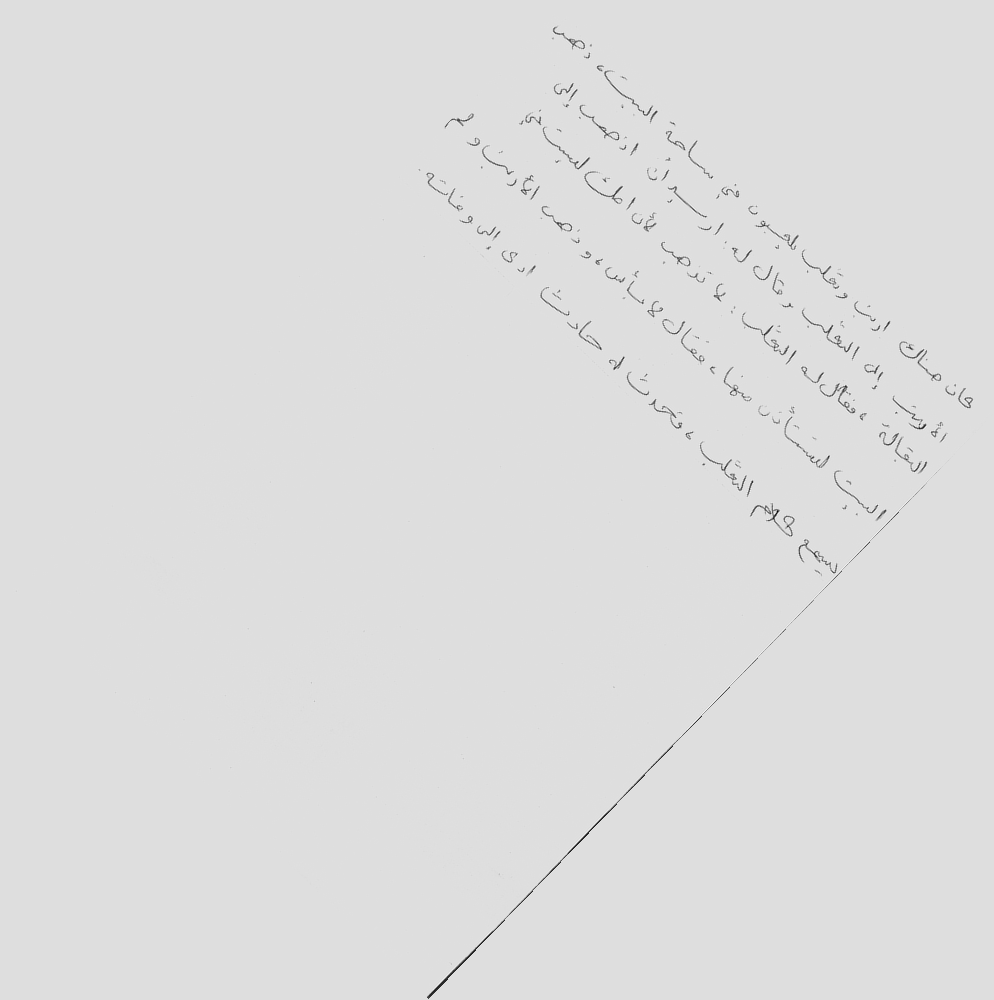 كان هناك ارنب وثعلب يلعبون في ساحة البيت، ذهب
الأرنب إلى الثعلب وقال له: اريد أن اذهب إلى
البقالة، فقال له الثعلب: لا تذهب لأن امك ليست في
البيت لتستأذن منها، فقال لا بأس، وذهب الأرنب ولم
يسمع كلام الثعلب، فحدث له حادث ادى إلى وفاته.